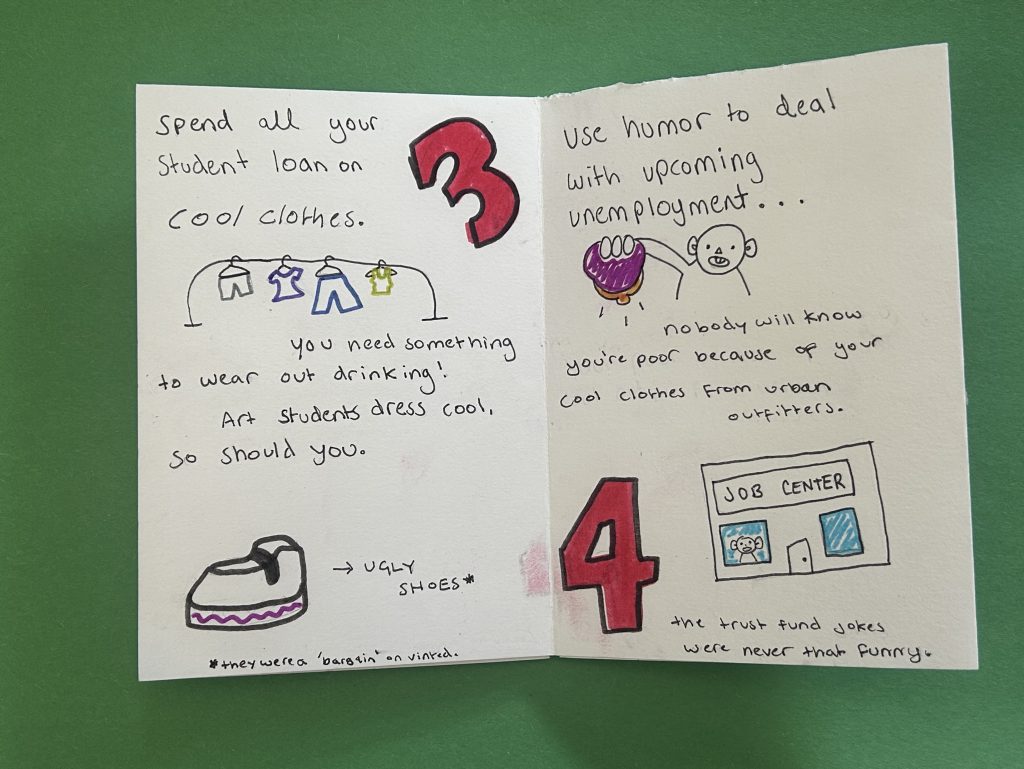 Spend all your
Student loan on
cool clothes.
3
you need something
to wear out drinking!
Art students dress cool,
so should you.
→ UGLY
SHOES*
*they were a 'bargain' on vinted.
use humor to deal
with upcoming
unemployment...
nobody will know
you're poor because of your
cool clothes from urban
outfitters.
JOB CENTER
4
the trust fund jokes
were never that funny.